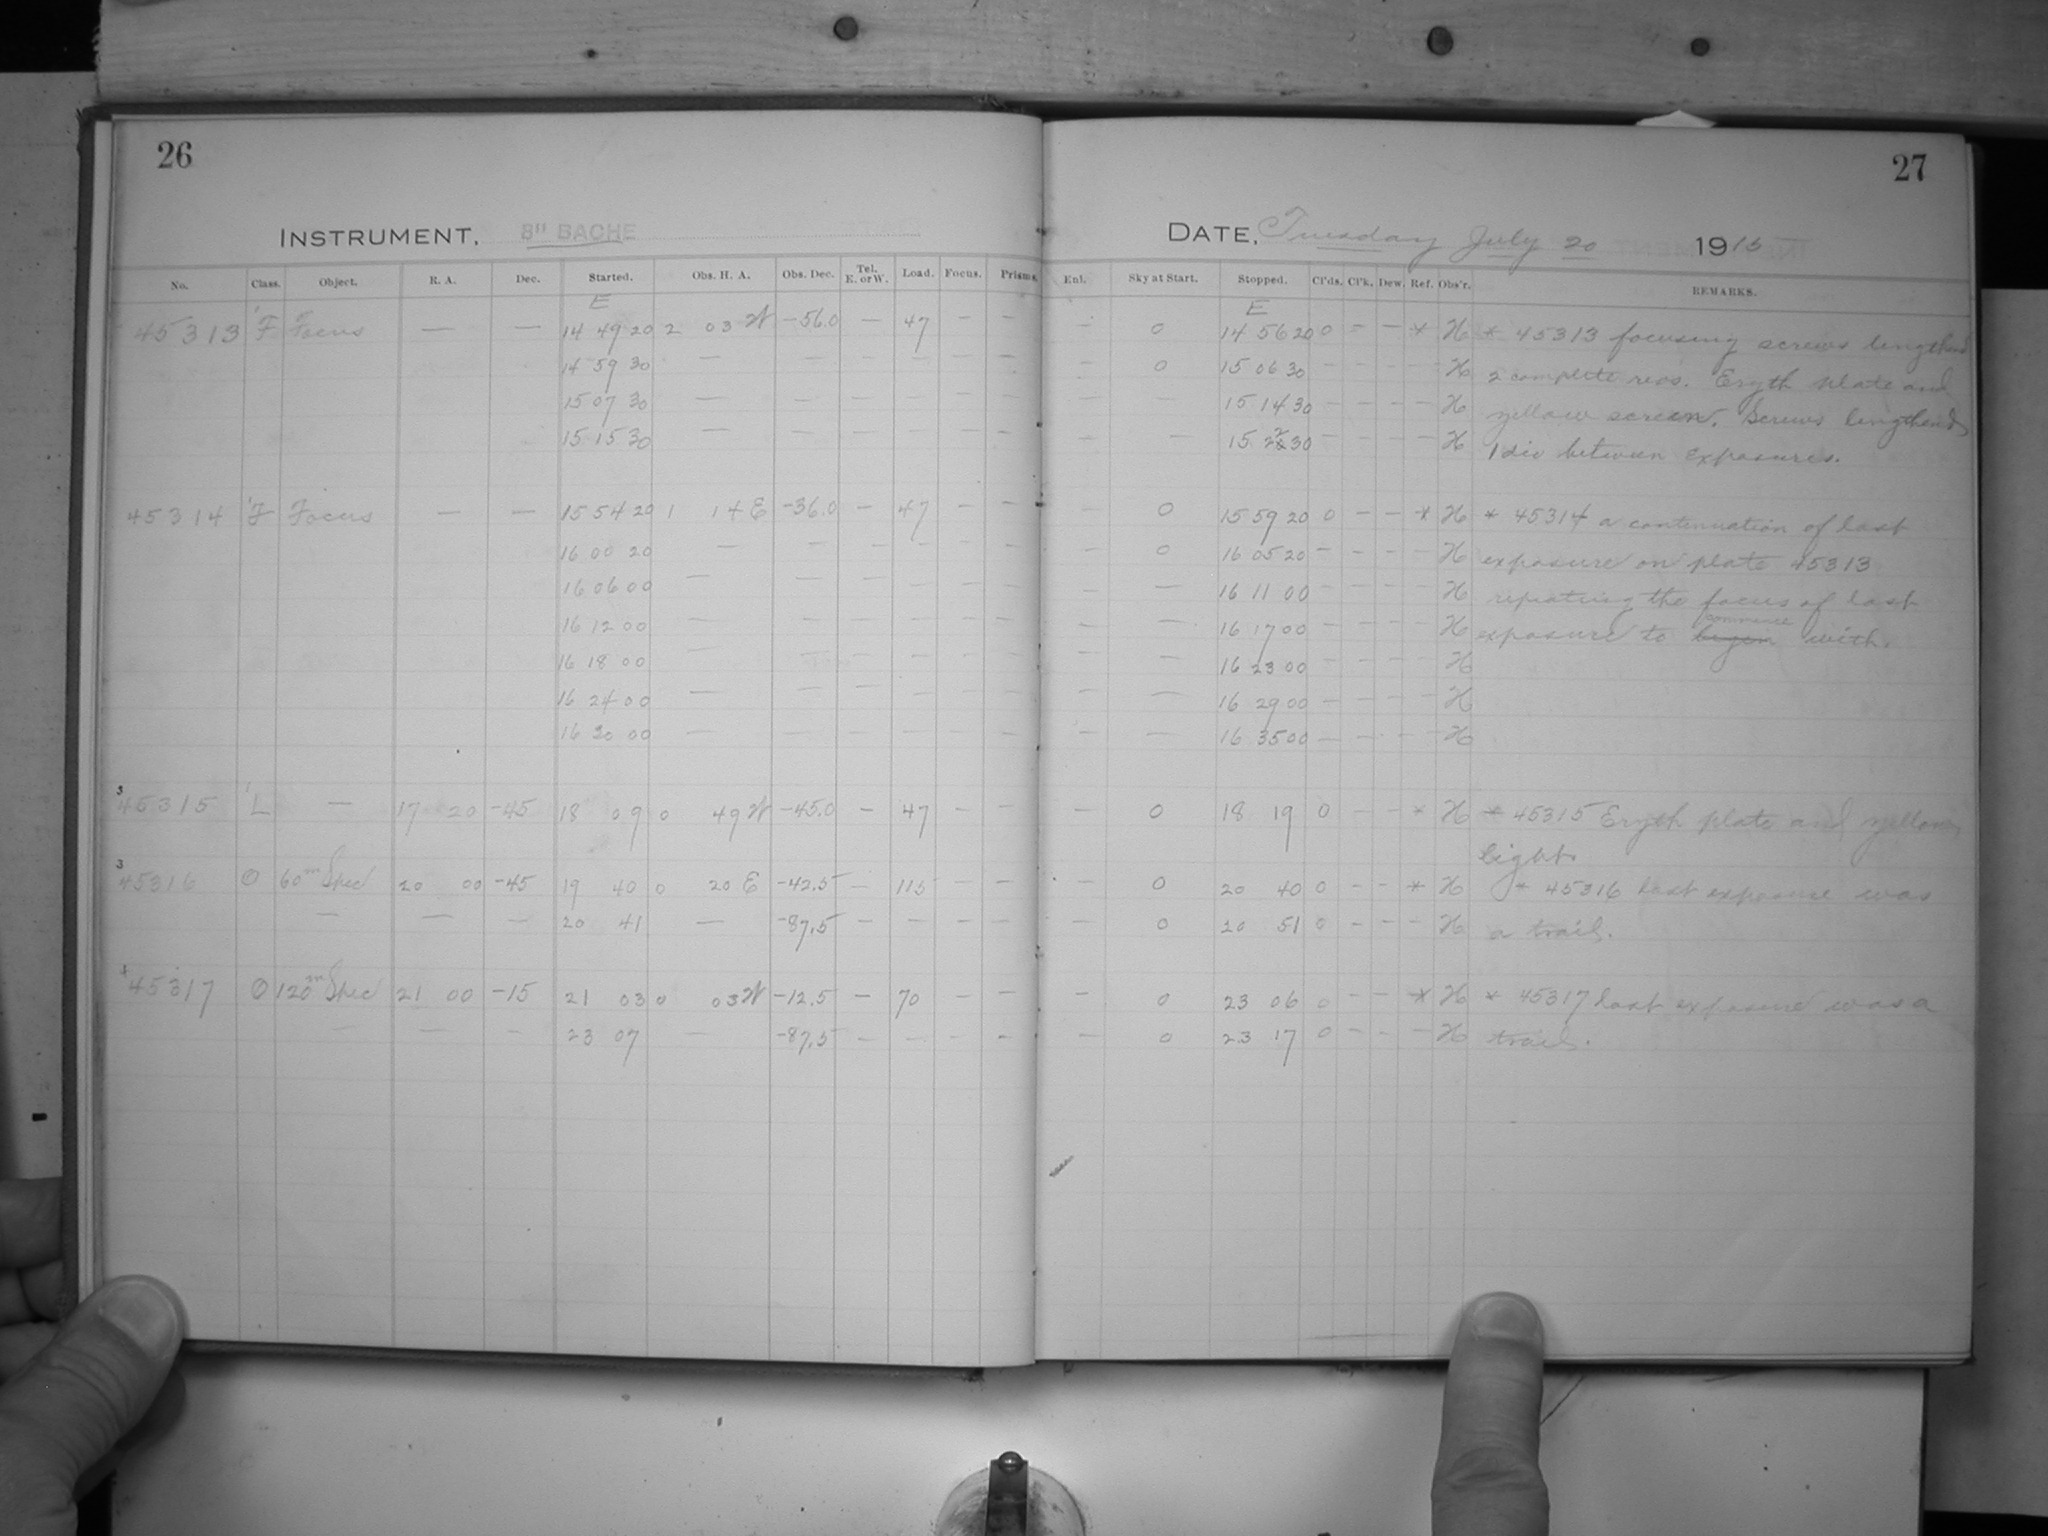 26
27
INSTRUMENT, 8" BACHE
DATE, Tuesday July 20 1915
No. Class. Object. R. A. Dec. Started. Obs. H. A. Obs. Dec. Tel. E. or W. Load. Focus. Prisms. Enl. Sky at Start. Stopped. Cl'ds. Cl'k. Dew. Ref. Obs'r. REMARKS.
E E
45313 'F Focus — — 14 49 20 2 03 W -56.0 — 47 — — — 0 14 56 20 0 — — * H * 45313 focusing screws lengthend
14 59 30 — — — — — — — 0 15 06 30 — — — — H 2 complete revs. Eryth plate and
15 07 30 — — — — — — — — 15 14 30 — — — — H yellow screen. Screws lengthend
15 15 30 — — — — — — — — 15 22 30 — — — — H 1 div between exposures.
45314 'F Focus — — 15 54 20 1 14 E -36.0 — 47 — — — 0 15 59 20 0 — — * H * 45314 a continuation of last
16 00 20 — — — — — — — 0 16 05 20 — — — — H exposure on plate 45313
16 06 00 — — — — — — — — 16 11 00 — — — — H repeating the focus of last
16 12 00 — — — — — — — — 16 17 00 — — — — H exposure to commence with.
16 18 00 — — — — — — — — 16 23 00 — — — — H
16 24 00 — — — — — — — — 16 29 00 — — — — H
16 30 00 — — — — — — — — 16 35 00 — — — — H
3 45315 'L — 17 20 -45 18 09 0 49 W -45.0 — 47 — — — 0 18 19 0 — — * H * 45315 Eryth plate and yellow
light.
3 45316 O 60m Spec 20 00 -45 19 40 0 20 E -42.5 — 115 — — — 0 20 40 0 — — * H * 45316 last exposure was
— — — 20 41 — -87.5 — — — — — 0 20 51 0 — — — H a trail.
45317 O 120m Spec 21 00 -15 21 03 0 03 W -12.5 — 70 — — — 0 23 06 0 — — * H * 45317 last exposure was a
— — — 23 07 — -87.5 — — — — — 0 23 17 0 — — — H trail.